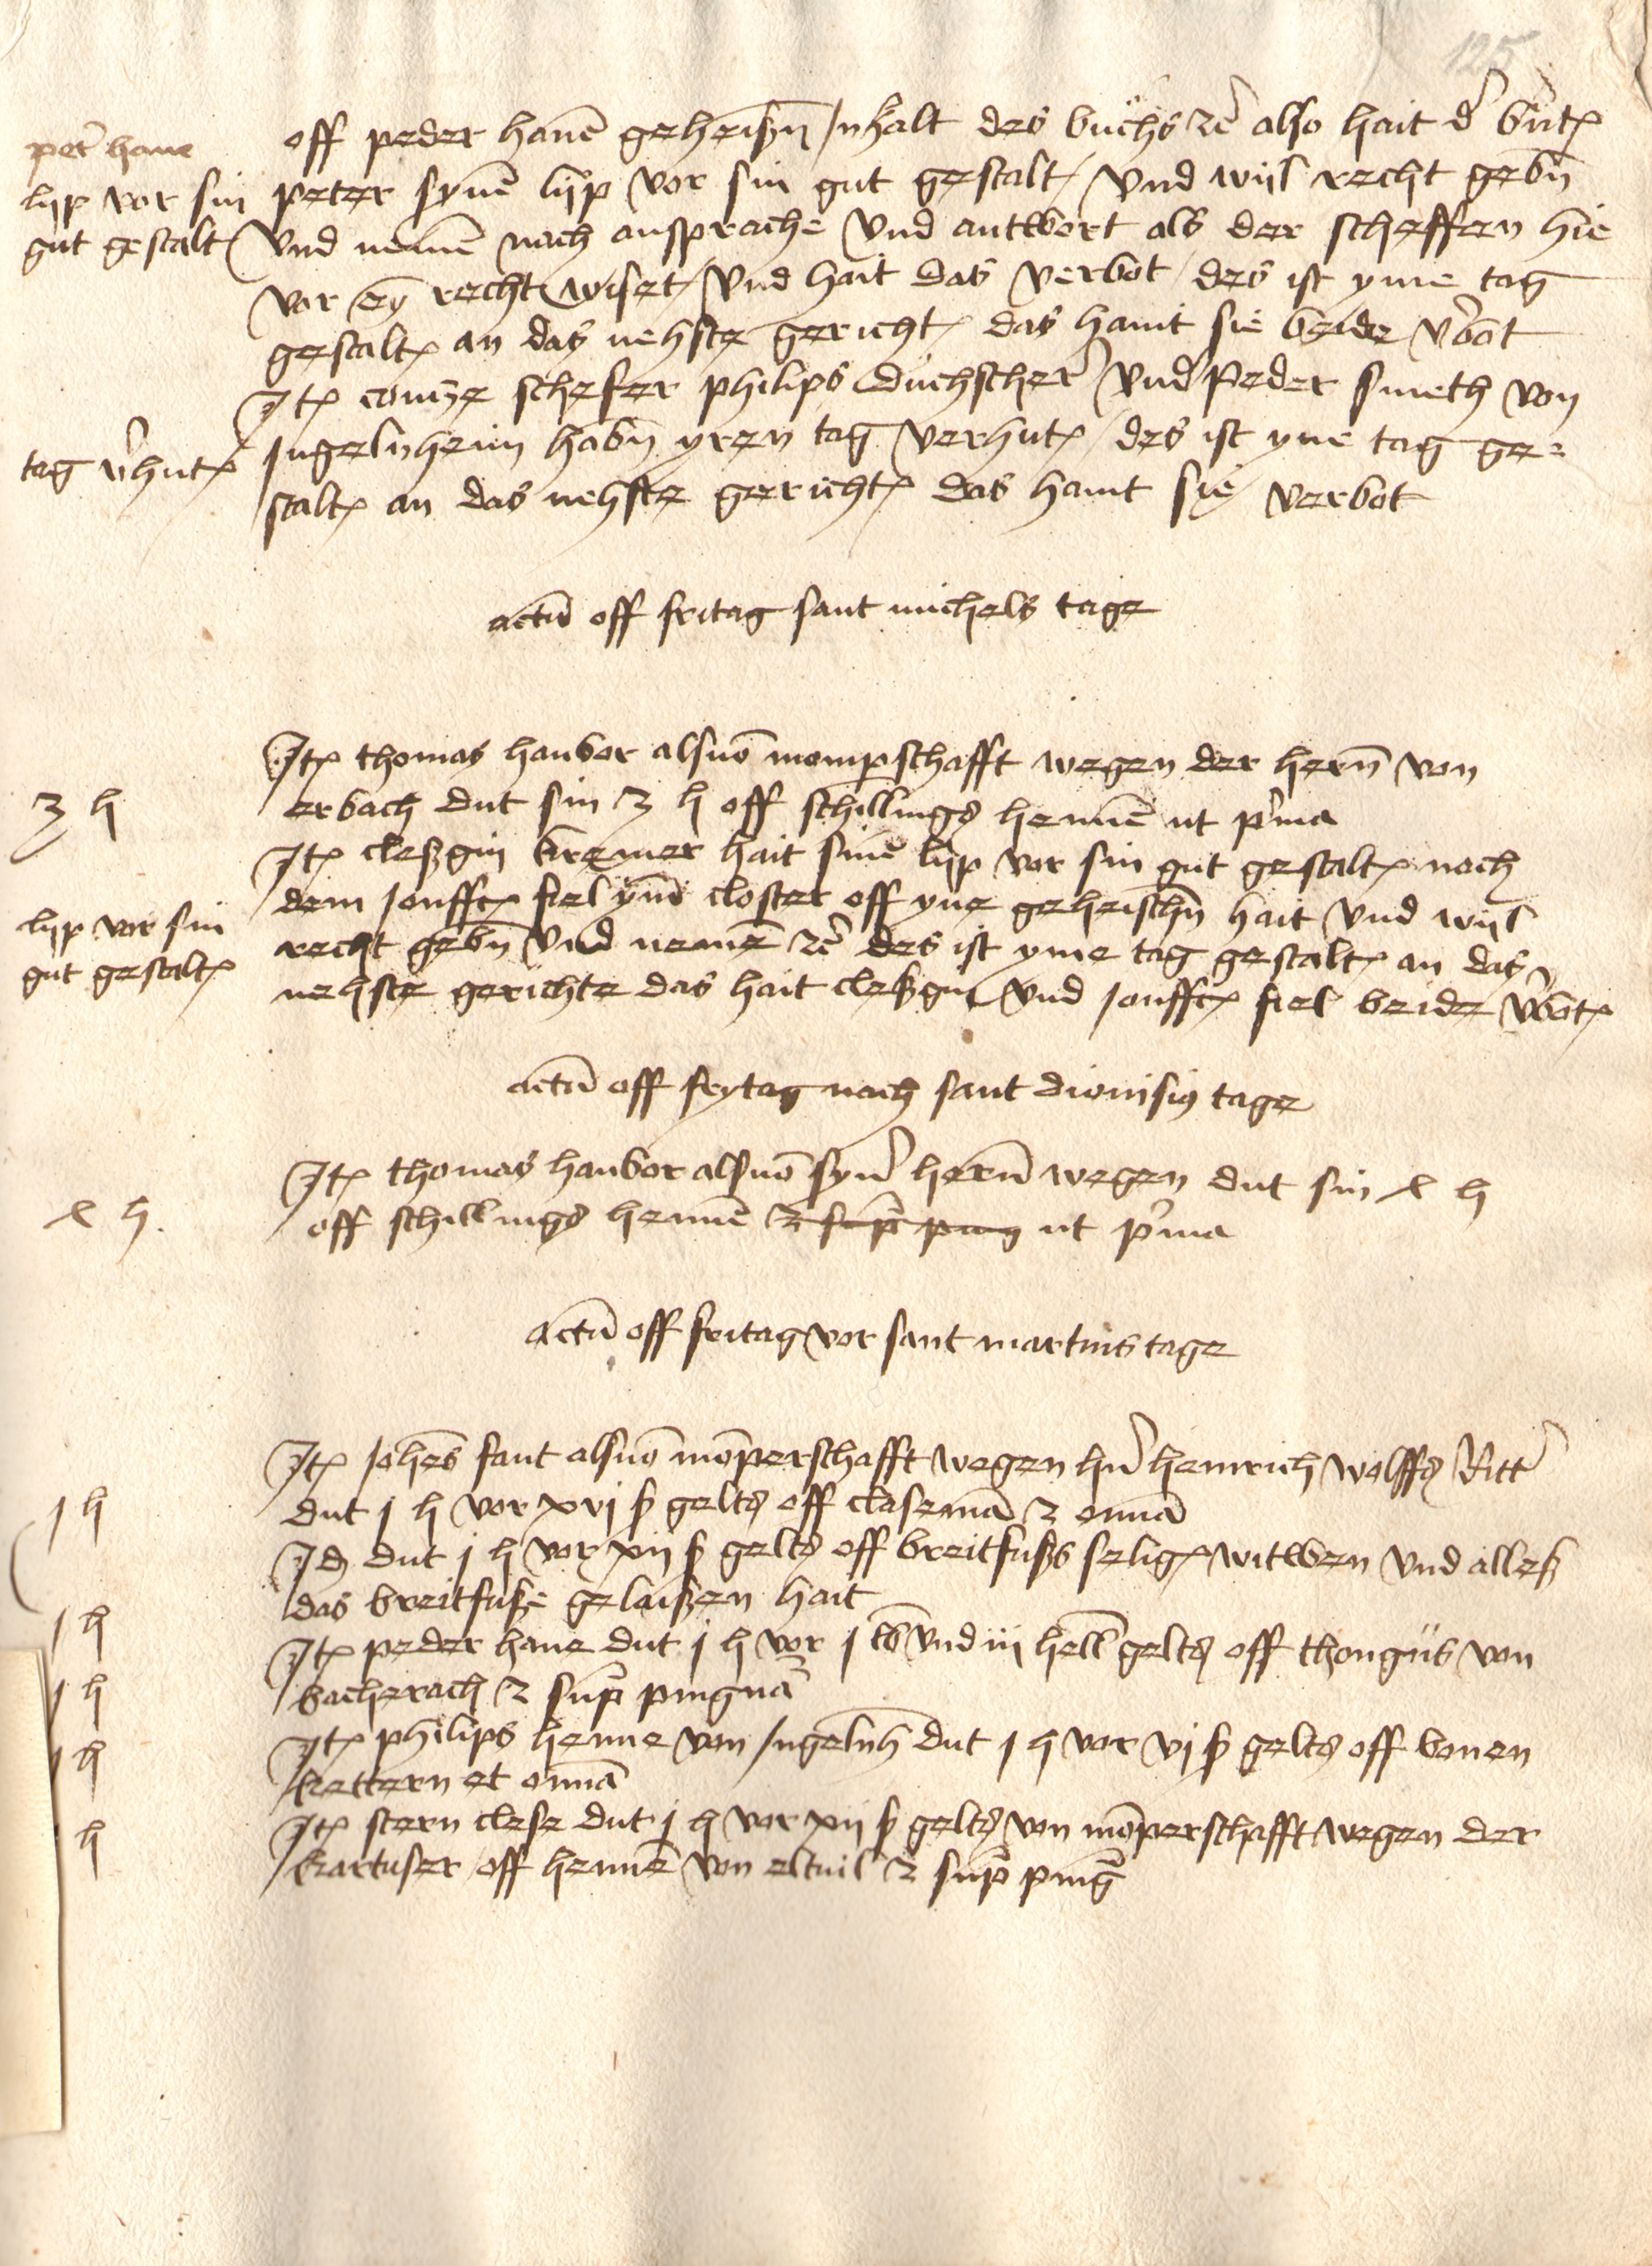 125
pet̃ hane
lijp vor sin
gut gestalt
off peder hanẽ geheisz̃n Inhalt des buchs ꝛc̃ also hait d̉ gn̄t
peter synẽ lijp vor sin gut gestalt / Vnd wijl recht gebñ
Vnd nemẽ nach ansprache Vnd antwort als der scheffen hie
vor ey̅ recht wiset / Vnd hait das verbot / des ist yme tag
gestalt an das nehste gericht das hant sie beide v̉bot
tag v̉hut
Itꝭ contze schefer philips duchscher̉ Vnd Peder smeth von
Ingelnheim habñ yren tag verhut / des ist yne tag ge=
stalt an das nehste gericht das hant sie verbot
actũ off fritag sant michels tage
3 h
Itꝭ thomas haubor alsuõ mompschafft wegen der hern̄ von
erbach dut sin 3 h off schillings hennẽ ut p̉ma
lijp vor sin
gut gestalt
Itꝭ cleßgin kremer hait sinẽ lijp vor sin gut gestalt noch
dem Jonff fiel ym̃ closter off yne geheischñ hait Vnd wijl
recht gebñ Vnd nemẽ ꝛc̃ des ist yme tag gestalt an das
nehste gerichte das hait cleßgin Vnd Jonff fiel beide v̉bot
actũ off frytag nach sant dionisiꝰ tage
x h.
Itꝭ thomas haubor alsuõ syn̉ hern̄ wegen dut sin x h
off schillings hennẽ ꝛ sup̃ ping ut p̉ma
actũ off fritag vor sant martins tage
j h
Itꝭ Johẽs fant alsuõ mõperschafft wegen hñ heinrich wolffs Ritt̉
dut j h vor xvj ß gelts off clasemã ꝛ om̃a
j h
Id dut j h vor xij ß gelts off breitfußs selig witwen Vnd alleß
das breitfuße gelaißen hait
j h
Itꝭ peder hane dut j h vor j lb̃ Vnd iij hell̃ gelts off thongus von
bacherach ꝛ sup̃ pingnã
j h
Itꝭ philips henne von Ingelnh̃ dut j h vor vj ß gelts off bonen
kettern et om̃ã
h
Itꝭ stern clese dut j h vor xij ß gelts von mõperschafft wegen der
kartuser off hennẽ von eltuil ꝛ sup̃ ping̃